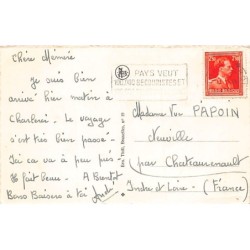 Chère Mémère
Je suis bien
arrivé hier matin à
Charleroi. Le voyage
s'est très bien passé.
Ici ça va à peu près
il fait beau. A Bientôt
Bons Baisers à toi
PAYS VEUT
Madame Vve PAPOIN
Neuville
(par Chateaurenault
Indre et Loire - (France)